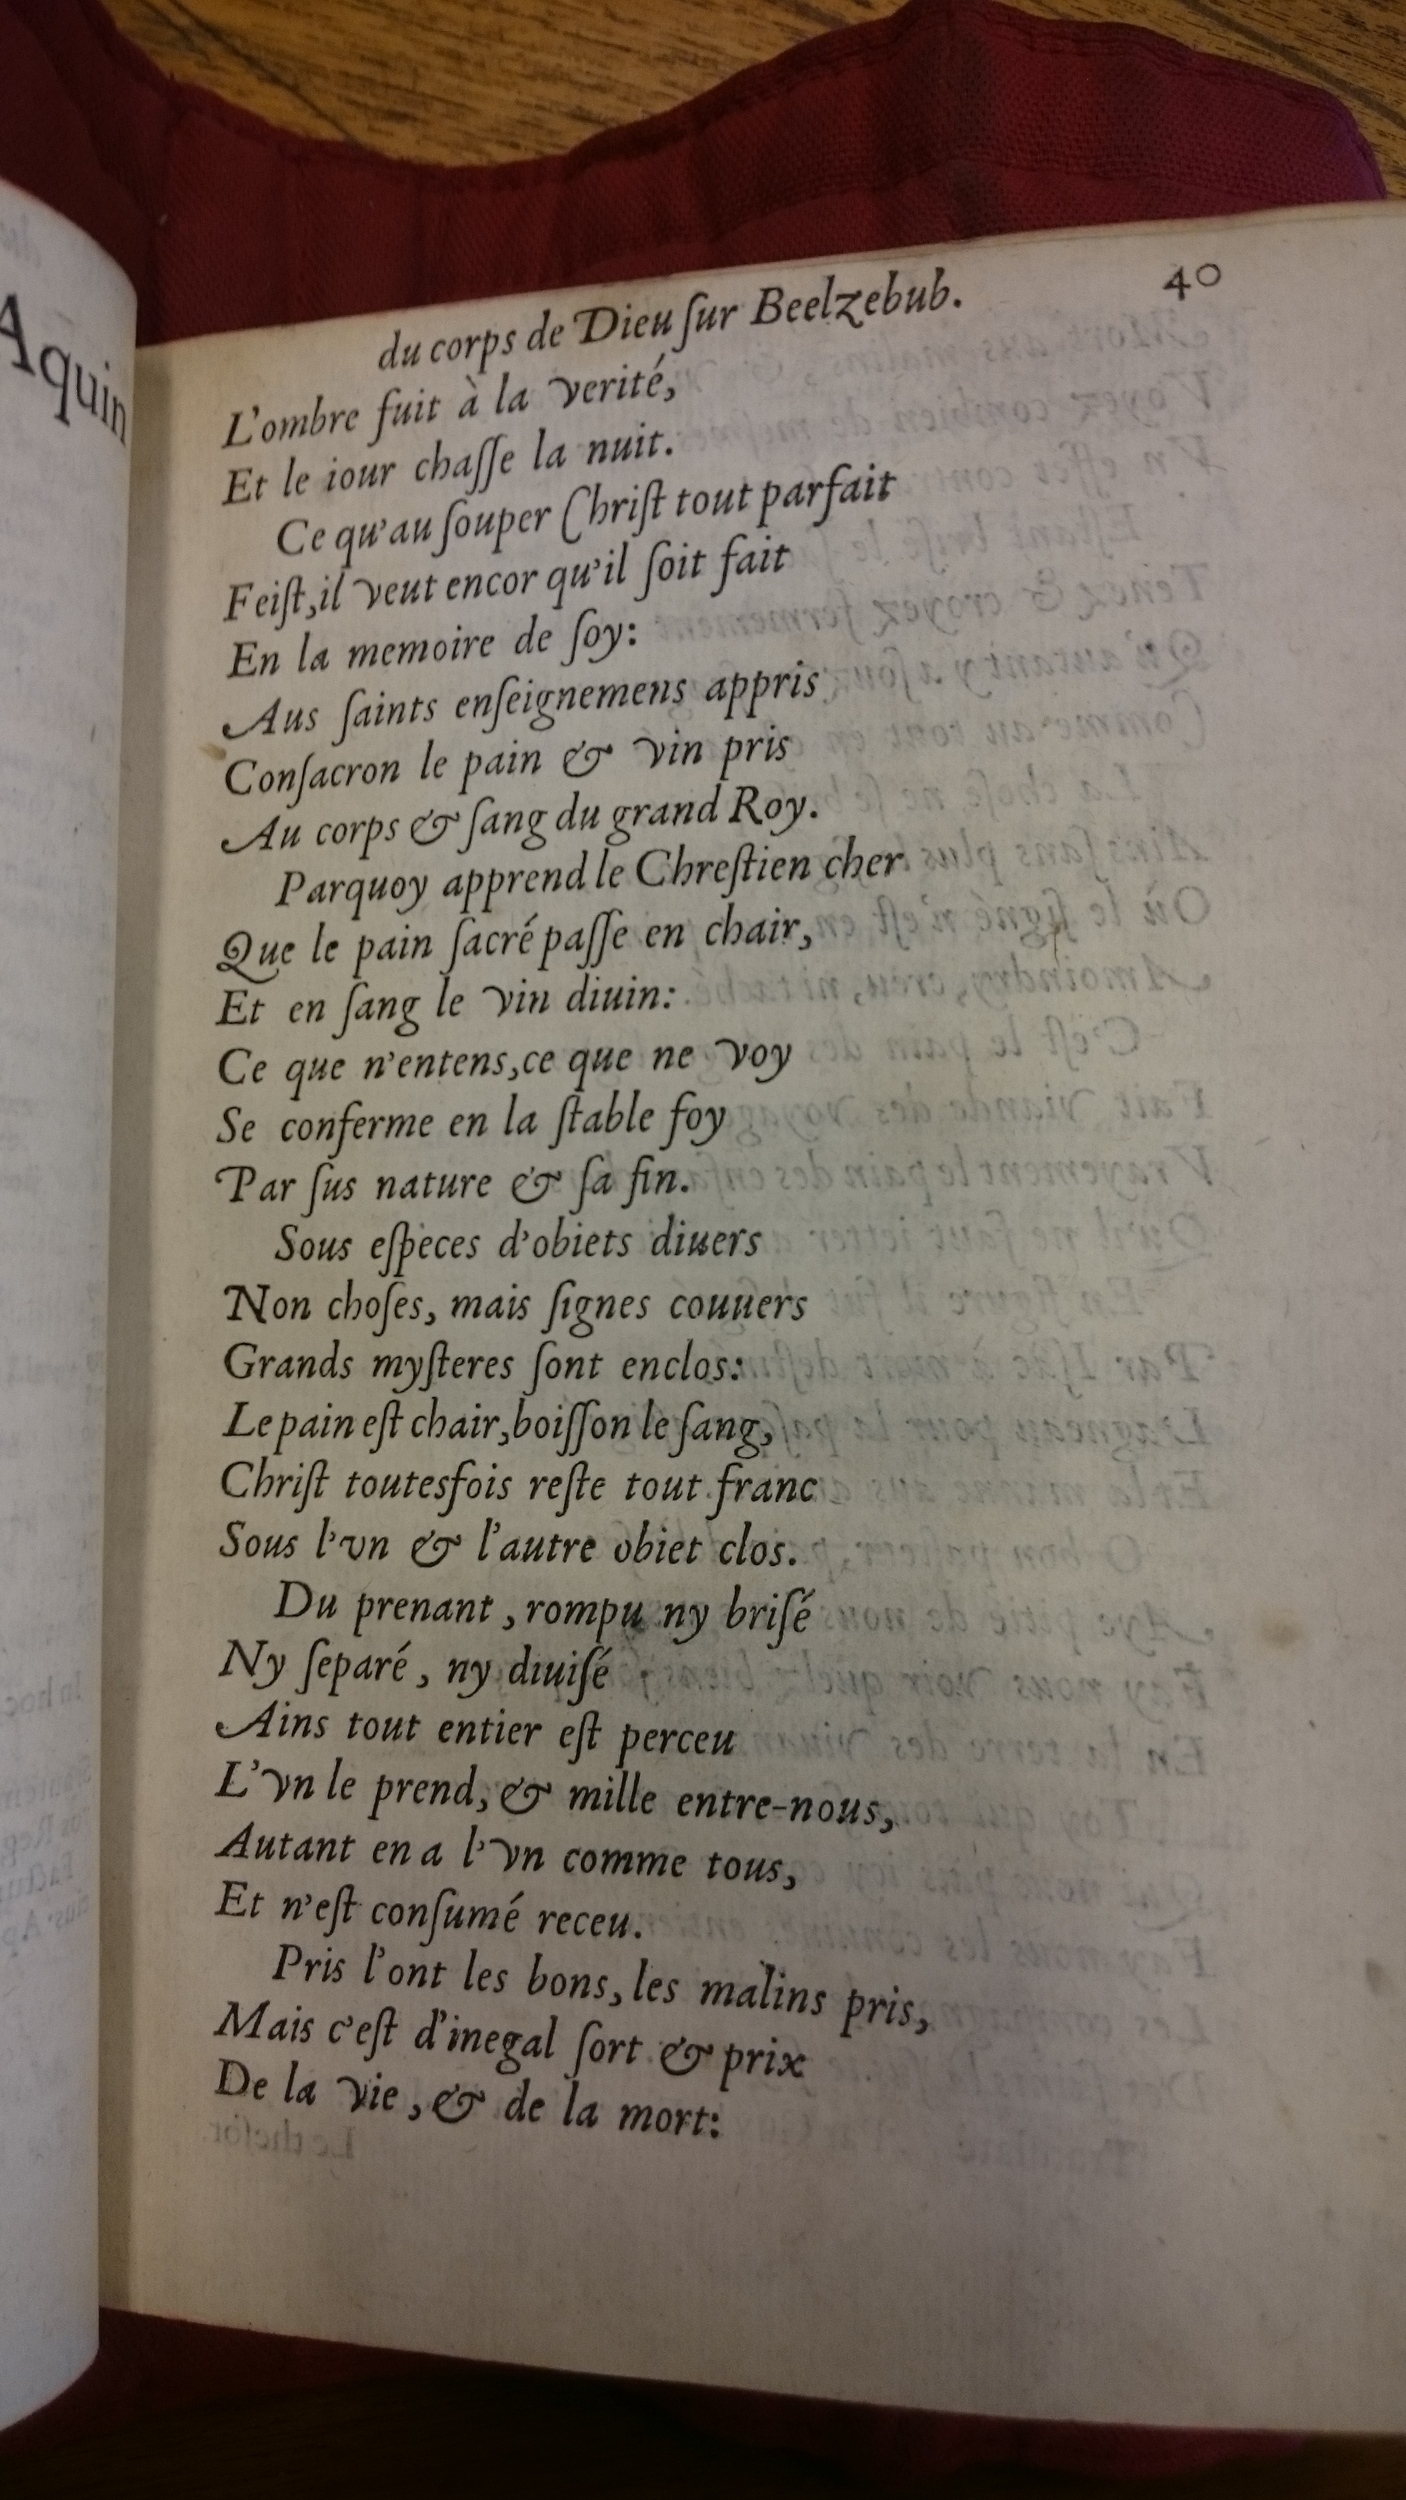 Aquin
du corps de Dieu ſur Beelzebub. 40
L'ombre fuit à la verité,
Et le iour chaſſe la nuit.
Ce qu'au ſouper Chriſt tout parfait
Feiſt, il veut encor qu'il ſoit fait
En la memoire de ſoy:
Aus ſaints enſeignemens appris
Conſacron le pain & vin pris
Au corps & ſang du grand Roy.
Parquoy apprend le Chreſtien cher
Que le pain ſacré paſſe en chair,
Et en ſang le vin diuin:
Ce que n'entens, ce que ne voy
Se conferme en la ſtable foy
Par ſus nature & ſa fin.
Sous eſpeces d'obiets diuers
Non choſes, mais ſignes couuers
Grands myſteres ſont enclos:
Le pain eſt chair, boiſſon le ſang,
Chriſt toutesfois reſte tout franc
Sous l'vn & l'autre obiet clos.
Du prenant, rompu ny briſé
Ny ſeparé, ny diuiſé
Ains tout entier eſt perceu
L'vn le prend, & mille entre-nous,
Autant en a l'vn comme tous,
Et n'eſt conſumé receu.
Pris l'ont les bons, les malins pris,
Mais c'eſt d'inegal ſort & prix
De la vie, & de la mort: